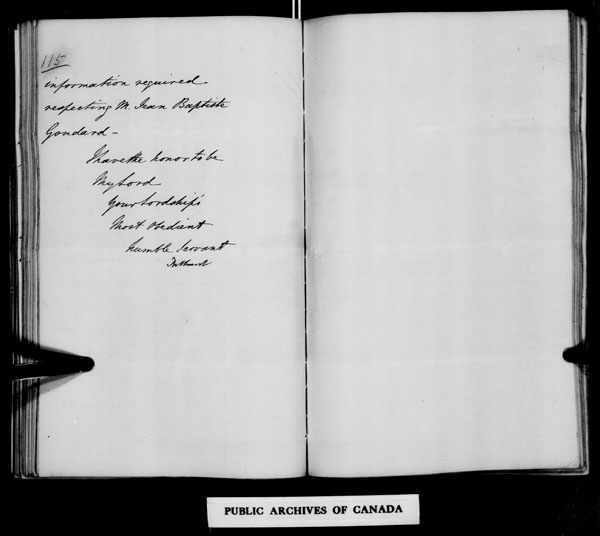 115
information required
respecting M. Jean Baptiste
Goudard –
I have the honor to be
My Lord
Your Lordship's
Most Obedient
humble Servant
PUBLIC ARCHIVES OF CANADA